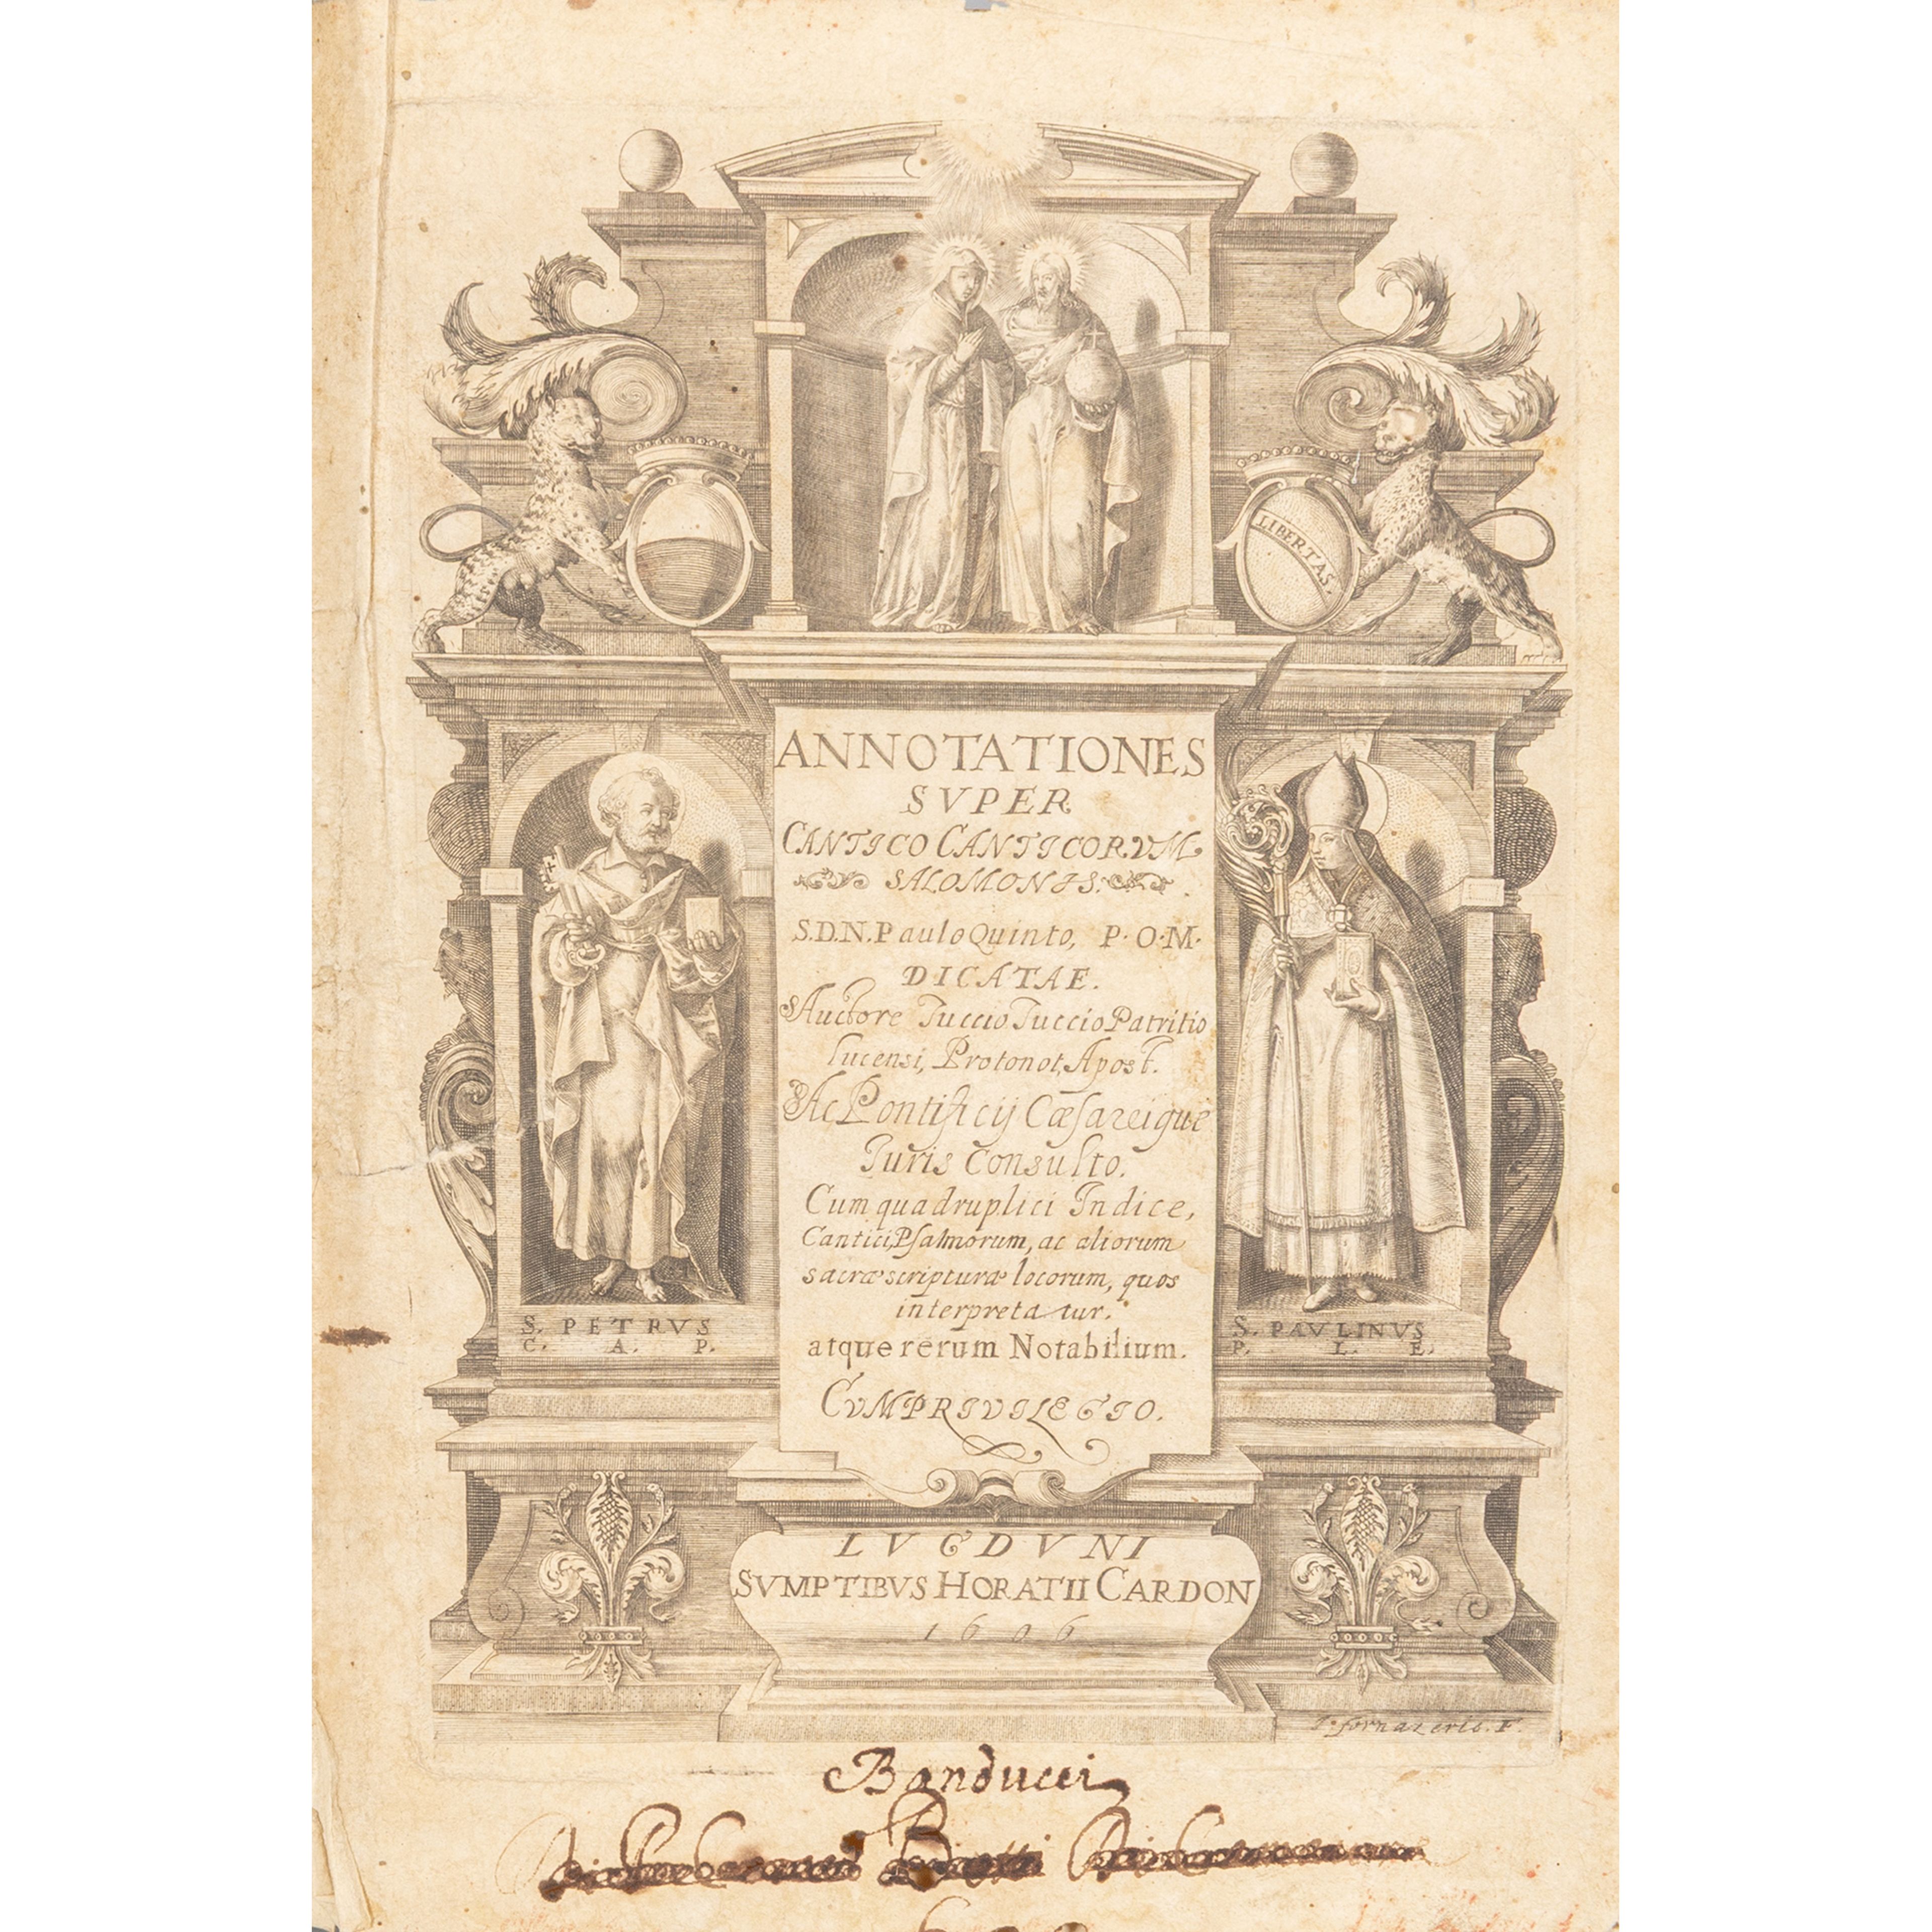 LIBERTAS.
ANNOTATIONES
SVPER
CANTICO CANTICORVM
SALOMONIS.
S.D.N. Paulo Quinto, P. O. M.
DICATAE.
Auctore Tuccio Tuccio Patritio
lucensi, Protonot, Apost.
Ac Pontificij Cæsareique
Juris Consulto.
Cum quadruplici Indice,
Cantici, Psalmorum, ac aliorum
sacræ scripturæ locorum, quos
interpretatur.
atque rerum Notabilium.
CVM PRIVILEGIO.
S. PETRVS
C. A. P.
S. PAVLINVS
P. L. E.
LVGDVNI
SVMPTIBVS HORATII CARDON
1606
I. fornazeris. F.
Banducci